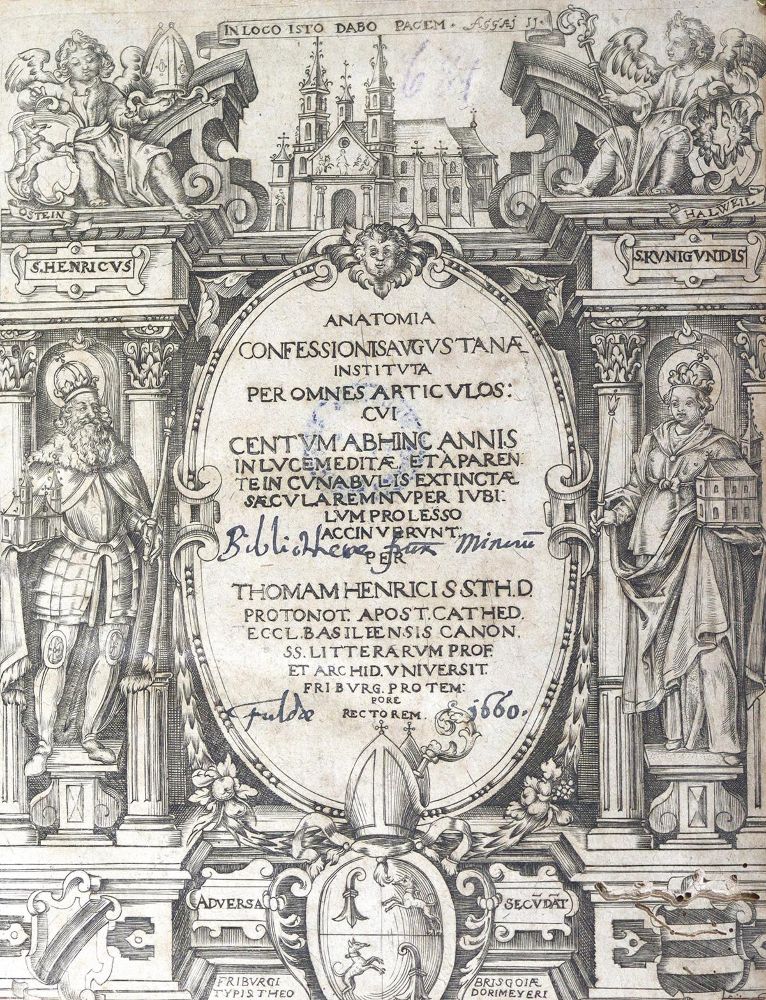 IN LOCO ISTO DABO PACEM. Aggæj II.
OSTEIN
HALWEIL
S. HENRICVS
S. KVNIGVNDIS
ANATOMIA
CONFESSIONIS AVGVSTANÆ
INSTITVTA
PER OMNES ARTICVLOS:
CVI
CENTVM ABHINC ANNIS
IN LVCEM EDITÆ ET A PAREN
TE IN CVNABVLIS EXTINCTÆ
SÆCVLAREM NVPER IVBI:
LVM PRO LESSO
ACCINVERVNT.
Bibliothecæ
PER
THOMAM HENRICI S S. TH. D.
PROTONOT. APOST. CATHED.
ECCL. BASILEENSIS CANON.
SS. LITTERARVM PROF
ET ARCHID. VNIVERSIT.
FRIBVRG. PRO TEM:
PORE
RECTOREM.
Fuldæ 1660.
ADVERSA
SECVDAT
FRIBVRGI
TYPIS THEO
BRISGOIÆ
DORIMEYERI